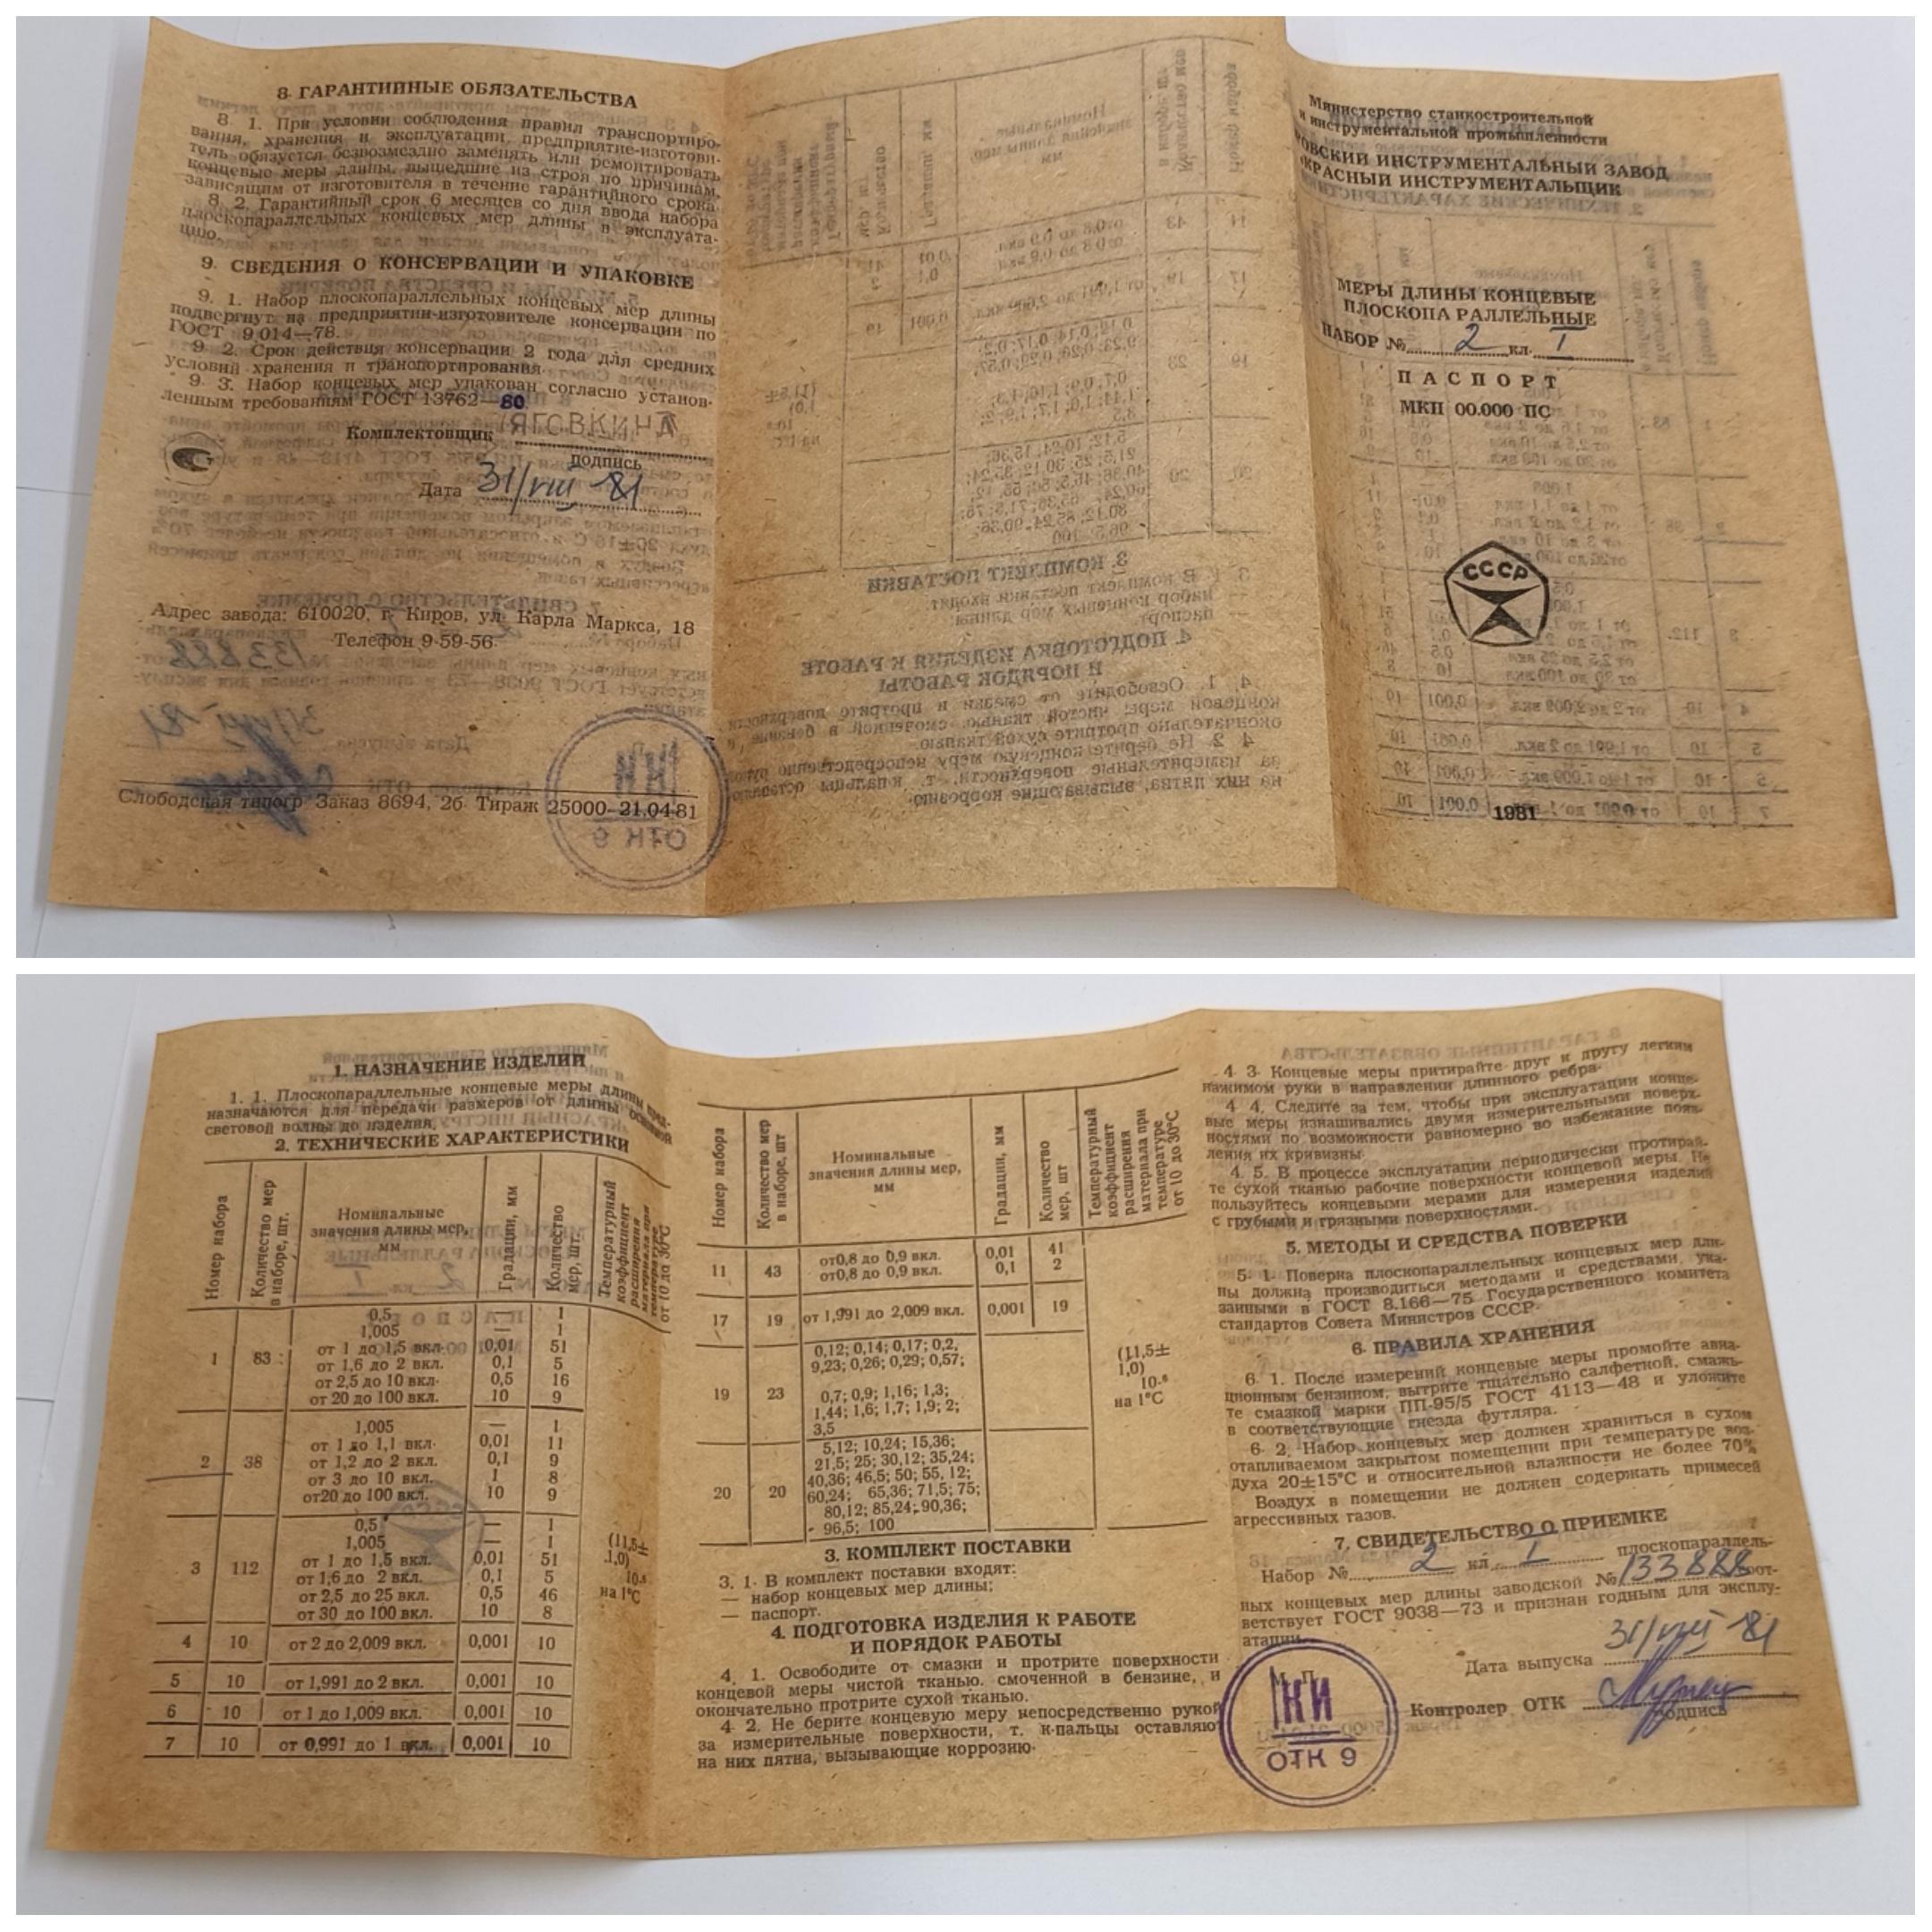 8. ГАРАНТИЙНЫЕ ОБЯЗАТЕЛЬСТВА
8. 1. При условии соблюдения правил транспортиро-
вания, хранения и эксплуатации, предприятие-изготови-
тель обязуется безвозмездно заменять или ремонтировать
концевые меры длины, вышедшие из строя по причинам,
зависящим от изготовителя в течение гарантийного срока.
8. 2. Гарантийный срок 6 месяцев со дня ввода набора
плоскопараллельных концевых мер длины в эксплуата-
цию.
9. СВЕДЕНИЯ О КОНСЕРВАЦИИ И УПАКОВКЕ
9. 1. Набор плоскопараллельных концевых мер длины
подвергнут на предприятии-изготовителе консервации по
ГОСТ 9.014—78.
9. 2. Срок действия консервации 2 года для средних
условий хранения и транспортирования.
9. 3. Набор концевых мер упакован согласно установ-
ленным требованиям ГОСТ 13762—80
Комплектовщик ЯГОВКИНА
подпись
Дата 31/VIII 81
Адрес завода: 610020, г. Киров, ул. Карла Маркса, 18
Телефон 9-59-56.
Слободская типогр Заказ 8694, 2б Тираж 25000 21.04 81
Министерство станкостроительной
и инструментальной промышленности
РОВСКИЙ ИНСТРУМЕНТАЛЬНЫЙ ЗАВОД
КРАСНЫЙ ИНСТРУМЕНТАЛЬЩИК
МЕРЫ ДЛИНЫ КОНЦЕВЫЕ
ПЛОСКОПА РАЛЛЕЛЬНЫЕ
НАБОР № 2 кл. I
ПАСПОРТ
МКП 00.000 ПС
СССР
1981
1. НАЗНАЧЕНИЕ ИЗДЕЛИЙ
1. 1. Плоскопараллельные концевые меры длины пред-
назначаются для передачи размеров от длины основной
световой волны до изделия.
2. ТЕХНИЧЕСКИЕ ХАРАКТЕРИСТИКИ
Номер набора
Количество мер в наборе, шт.
Номинальные значения длины мер, мм
Градации, мм
Количество мер, шт.
Температурный коэффициент расширения материала при температуре от 10 до 30°С
0,5 — 1
1,005 — 1
1 83 от 1 до 1,5 вкл. 0,01 51
от 1,6 до 2 вкл. 0,1 5
от 2,5 до 10 вкл. 0,5 16
от 20 до 100 вкл. 10 9
1,005 — 1
от 1 до 1,1 вкл. 0,01 11
2 38 от 1,2 до 2 вкл. 0,1 9
от 3 до 10 вкл. 1 8
от20 до 100 вкл. 10 9
0,5 — 1
1,005 — 1
3 112 от 1 до 1,5 вкл. 0,01 51
от 1,6 до 2 вкл. 0,1 5
от 2,5 до 25 вкл. 0,5 46
от 30 до 100 вкл. 10 8
(11,5±
1,0)
10-⁶
на 1°С
4 10 от 2 до 2,009 вкл. 0,001 10
5 10 от 1,991 до 2 вкл. 0,001 10
6 10 от 1 до 1,009 вкл. 0,001 10
7 10 от 0,991 до 1 вкл. 0,001 10
Номер набора
Количество мер в наборе, шт
Номинальные значения длины мер, мм
Градации, мм
Количество мер, шт
Температурный коэффициент расширения материала при температуре от 10 до 30°С
11 43 от0,8 до 0,9 вкл. 0,01 41
от0,8 до 0,9 вкл. 0,1 2
17 19 от 1,991 до 2,009 вкл. 0,001 19
0,12; 0,14; 0,17; 0,2,
9,23; 0,26; 0,29; 0,57;
19 23 0,7; 0,9; 1,16; 1,3;
1,44; 1,6; 1,7; 1,9; 2;
3,5
(11,5±
1,0)
10-⁶
на 1°С
5,12; 10,24; 15,36;
21,5; 25; 30,12; 35,24;
40,36; 46,5; 50; 55, 12;
20 20 60,24; 65,36; 71,5; 75;
80,12; 85,24; 90,36;
96,5; 100
3. КОМПЛЕКТ ПОСТАВКИ
3. 1. В комплект поставки входят:
— набор концевых мер длины;
— паспорт.
4. ПОДГОТОВКА ИЗДЕЛИЯ К РАБОТЕ
И ПОРЯДОК РАБОТЫ
4. 1. Освободите от смазки и протрите поверхности
концевой меры чистой тканью, смоченной в бензине, и
окончательно протрите сухой тканью.
4. 2. Не берите концевую меру непосредственно рукой
за измерительные поверхности, т. к. пальцы оставляют
на них пятна, вызывающие коррозию.
4. 3. Концевые меры притирайте друг к другу легким
нажимом руки в направлении длинного ребра.
4. 4. Следите за тем, чтобы при эксплуатации конце-
вые меры изнашивались двумя измерительными поверх-
ностями по возможности равномерно во избежание появ-
ления их кривизны.
4. 5. В процессе эксплуатации периодически протирай-
те сухой тканью рабочие поверхности концевой меры. Не
пользуйтесь концевыми мерами для измерения изделий
с грубыми и грязными поверхностями.
5. МЕТОДЫ И СРЕДСТВА ПОВЕРКИ
5. 1. Поверка плоскопараллельных концевых мер дли-
ны должна производиться методами и средствами, ука-
занными в ГОСТ 8.166—75 Государственного комитета
стандартов Совета Министров СССР.
6. ПРАВИЛА ХРАНЕНИЯ
6. 1. После измерений концевые меры промойте авиа-
ционным бензином, вытрите тщательно салфеткой, смажь-
те смазкой марки ПП-95/5 ГОСТ 4113—48 и уложите
в соответствующие гнезда футляра.
6. 2. Набор концевых мер должен храниться в сухом
отапливаемом закрытом помещении при температуре воз-
духа 20±15°С и относительной влажности не более 70%
Воздух в помещении не должен содержать примесей
агрессивных газов.
7. СВИДЕТЕЛЬСТВО О ПРИЕМКЕ
Набор № 2 кл I плоскопараллель-
ных концевых мер длины заводской № 133888 соот-
ветствует ГОСТ 9038—73 и признан годным для эксплу-
атации.
Дата выпуска 31/VIII 81
М. П.
КИ
ОТК 9
Контролер ОТК
подпись